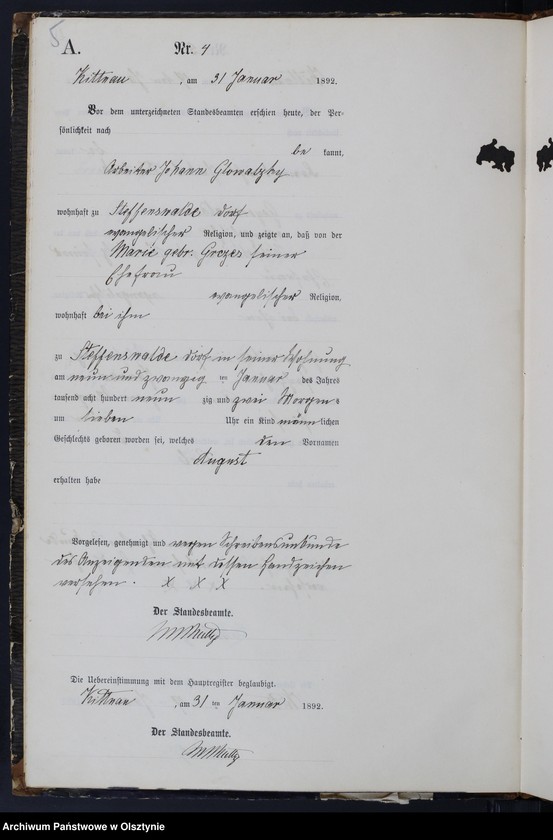 5
A. Nr. 4
Kittnau, am 31 Januar 1892.
Vor dem unterzeichneten Standesbeamten erschien heute, der Per-
sönlichkeit nach
be kannt,
Arbeiter Johann
wohnhaft zu Steffenswalde dorf
evangelischer Religion, und zeigte an, daß von der
Marie geb. seiner
Ehefrau
evangelischer Religion,
wohnhaft bei ihm
zu Steffenswalde dorf in seiner Wohnung
am neun und zwanzig ten Januar des Jahres
tausend acht hundert neun zig und zwei Morgens
um sieben Uhr ein Kind männlichen
Geschlechts geboren worden sei, welches den Vornamen
August
erhalten habe
Vorgelesen, genehmigt und wegen Schreibensunkunde
des Anzeigenden mit dessen Handzeichen
versehen. X X X
Der Standesbeamte.
Die Uebereinstimmung mit dem Hauptregister beglaubigt.
Kittnau, am 31 ten Januar 1892.
Der Standesbeamte.
Archiwum Państwowe w Olsztynie